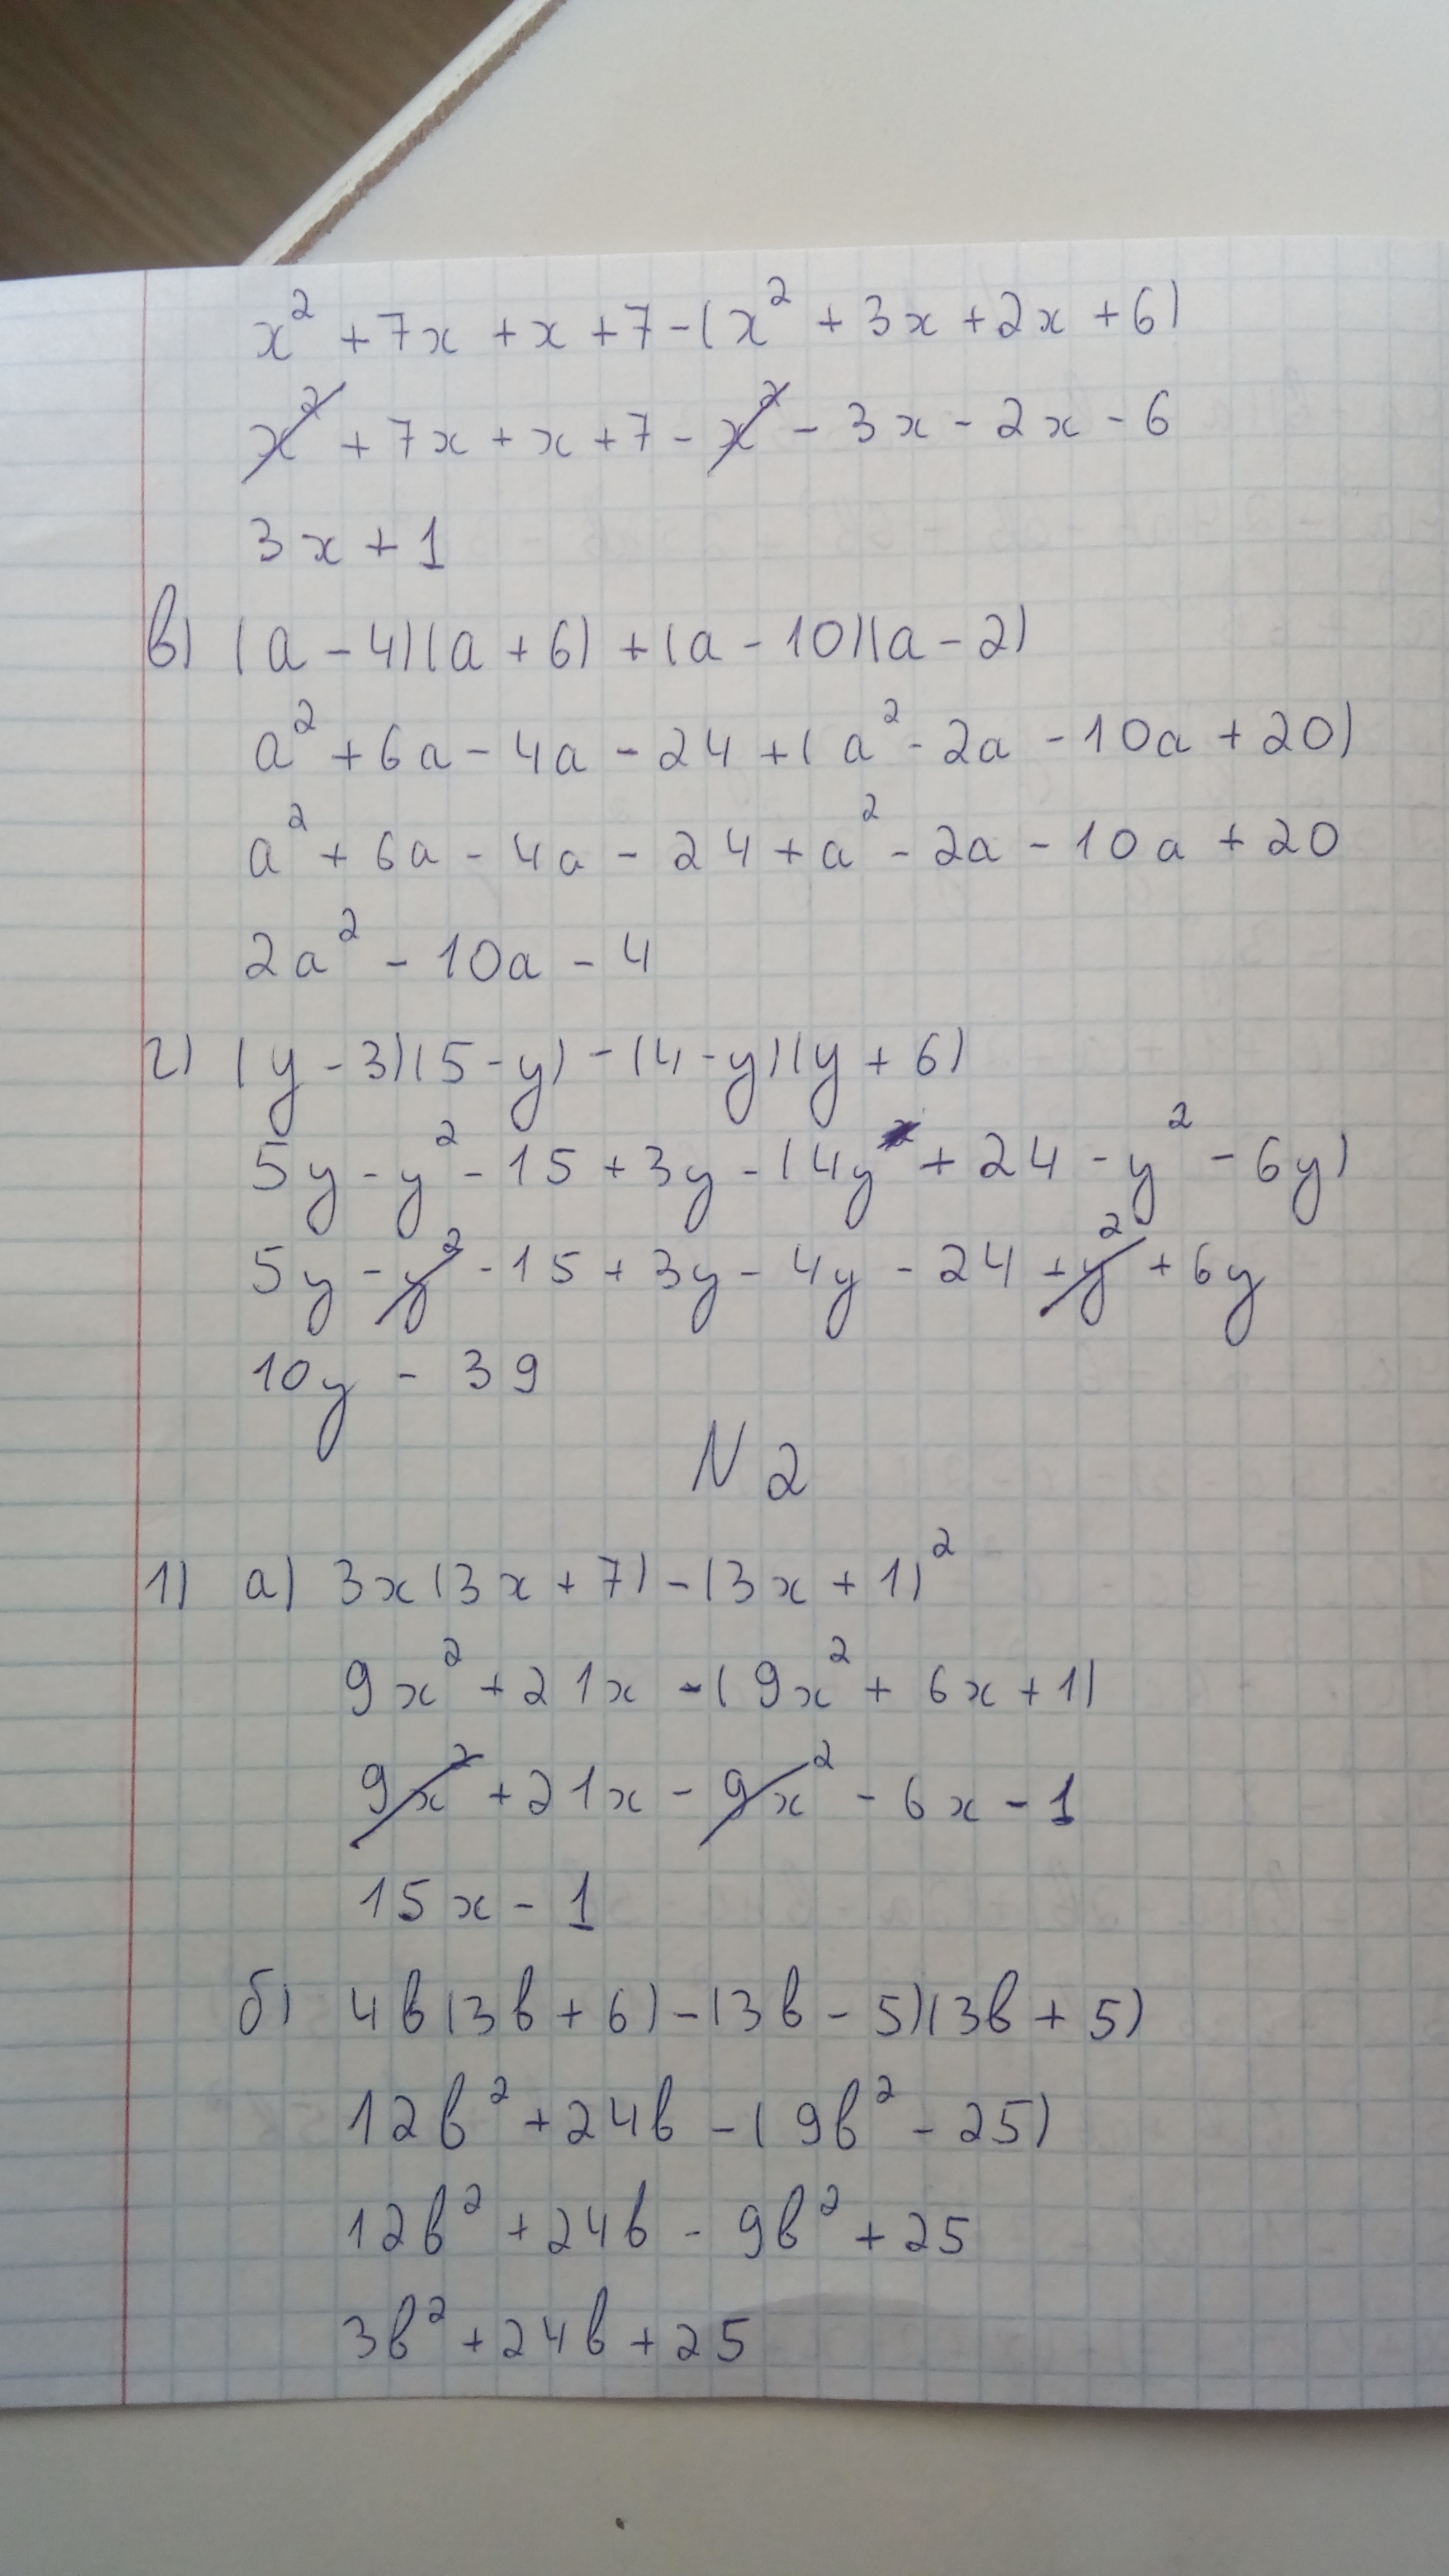 x² + 7x + x + 7 - (x² + 3x + 2x + 6)
x² + 7x + x + 7 - x² - 3x - 2x - 6
3x + 1
в) (a - 4)(a + 6) + (a - 10)(a - 2)
a² + 6a - 4a - 24 + (a² - 2a - 10a + 20)
a² + 6a - 4a - 24 + a² - 2a - 10a + 20
2a² - 10a - 4
г) (y - 3)(5 - y) - (4 - y)(y + 6)
5y - y² - 15 + 3y - (4y + 24 - y² - 6y)
5y - y² - 15 + 3y - 4y - 24 + y² + 6y
10y - 39
N 2
1) а) 3x(3x + 7) - (3x + 1)²
9x² + 21x - (9x² + 6x + 1)
9x² + 21x - 9x² - 6x - 1
15x - 1
б) 4b(3b + 6) - (3b - 5)(3b + 5)
12b² + 24b - (9b² - 25)
12b² + 24b - 9b² + 25
3b² + 24b + 25